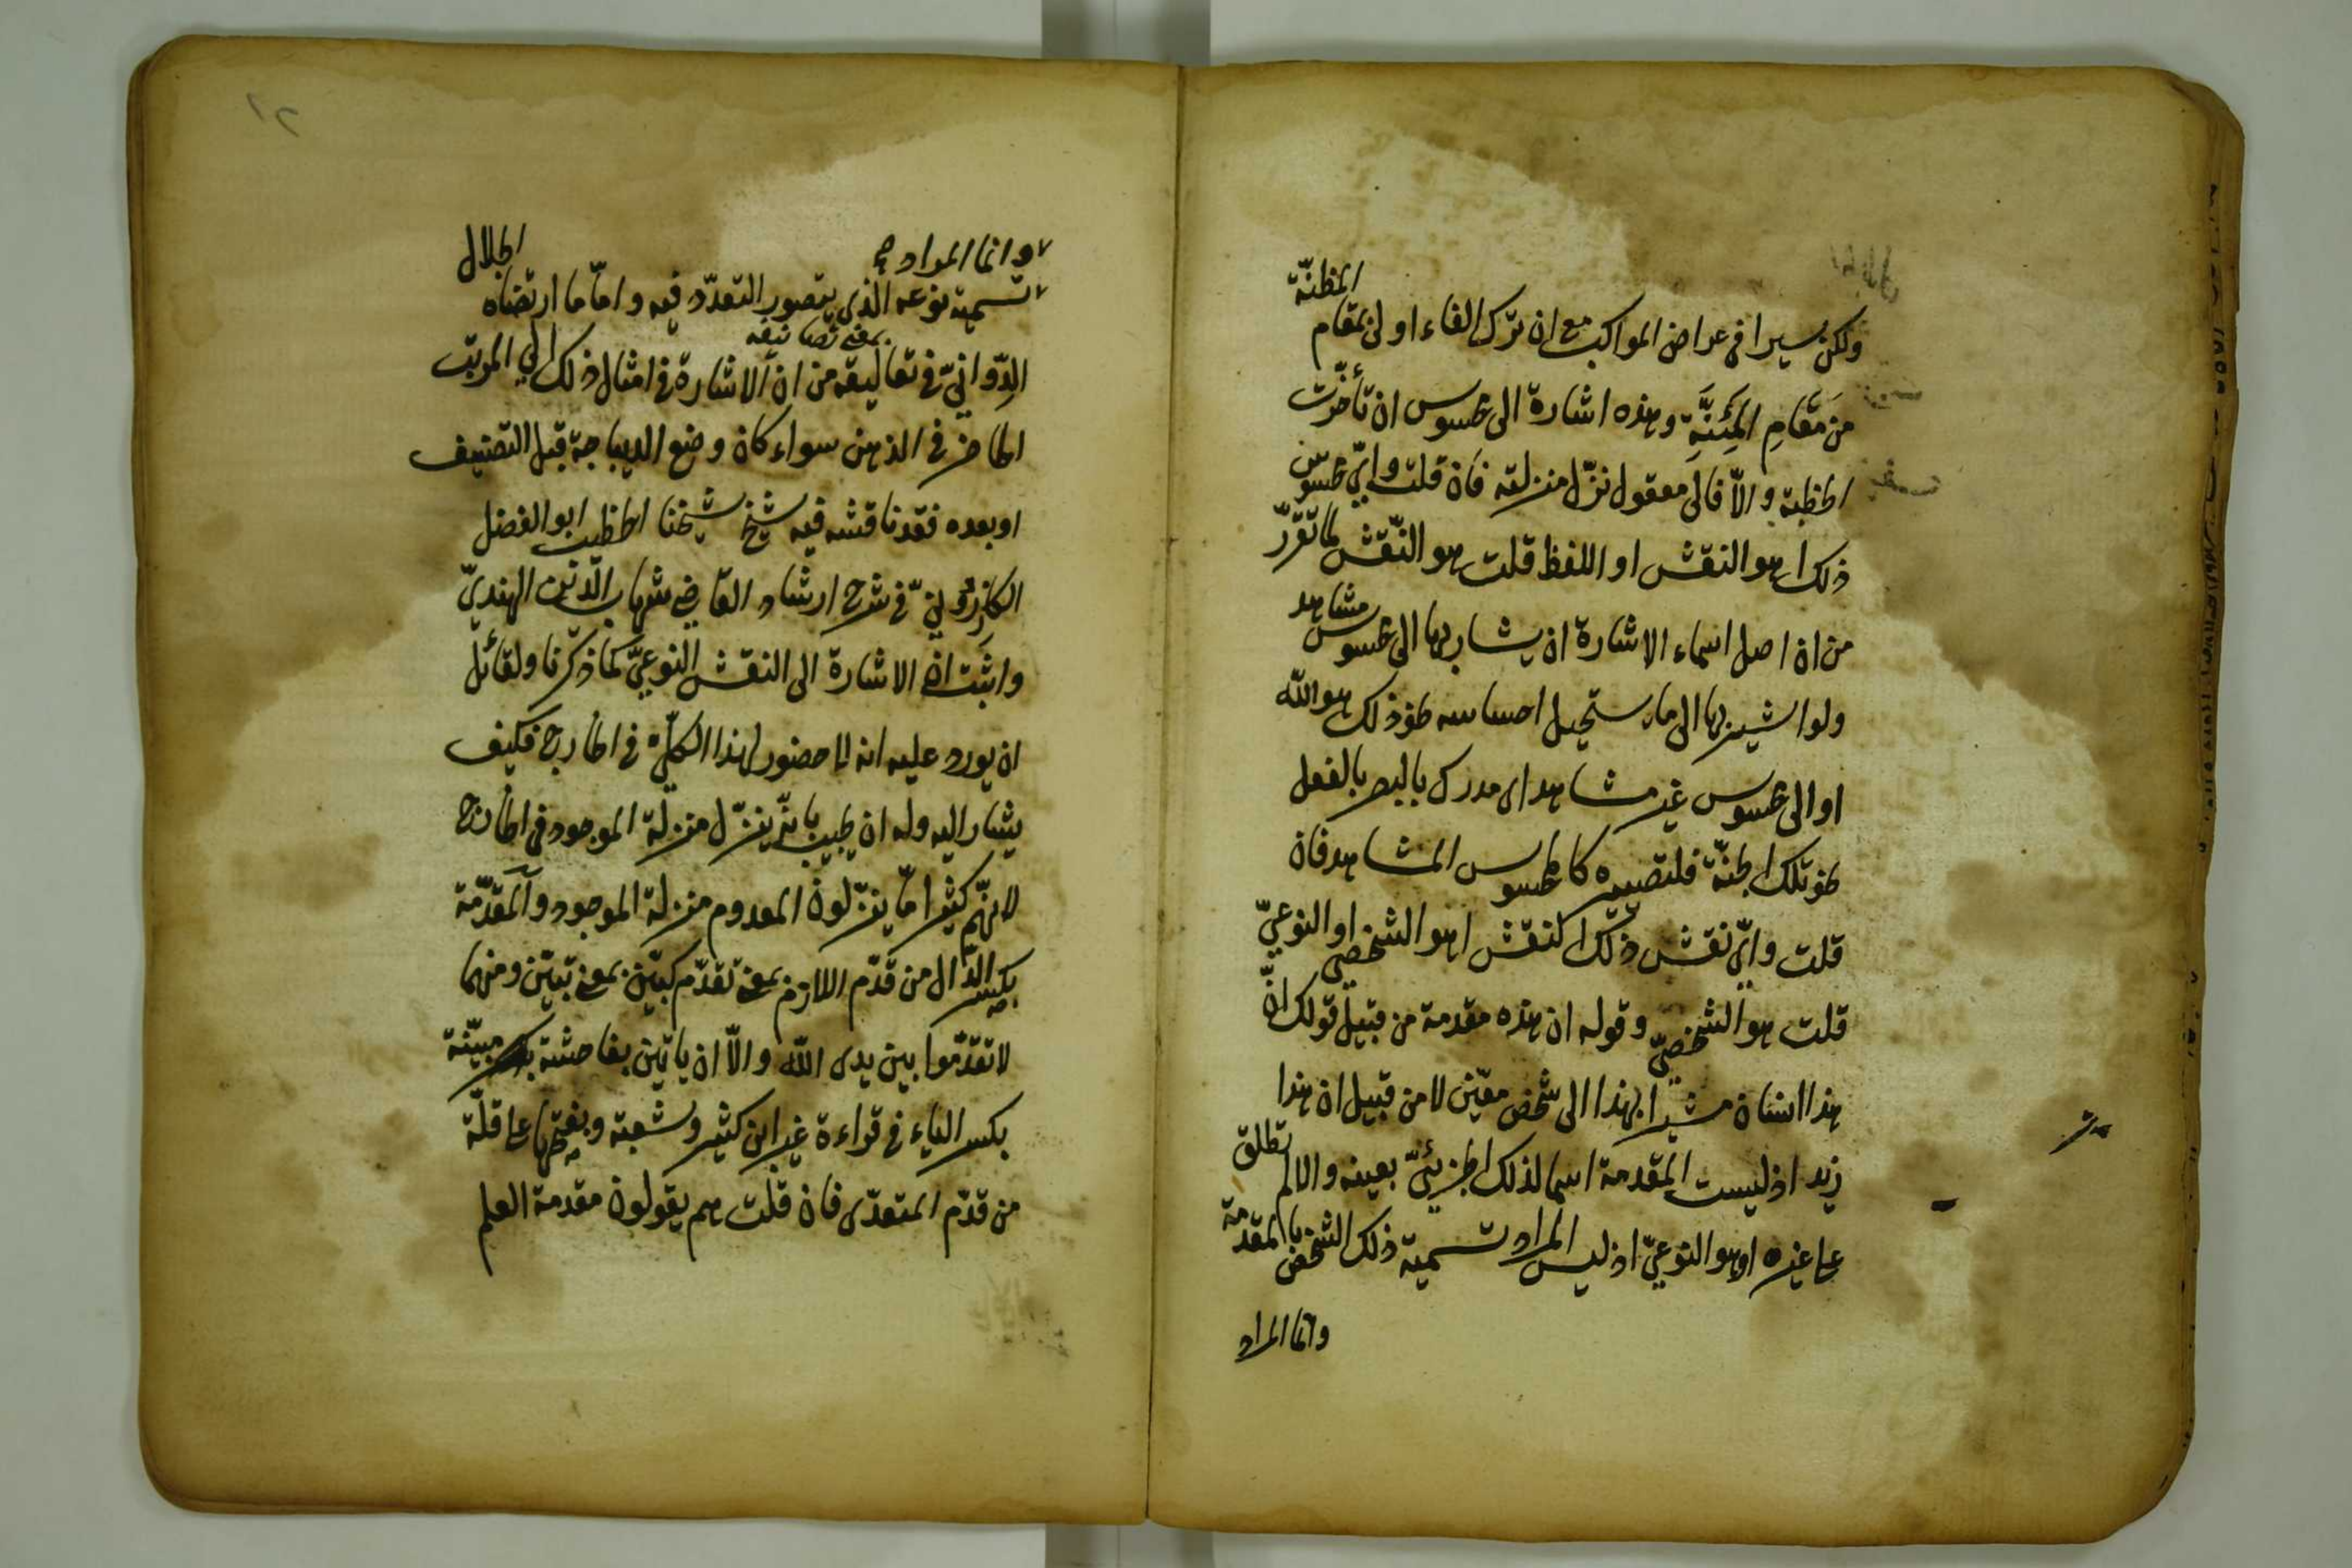 ولكن سيرا في عراض المواكب مع ان ترك الفاء اولى بمقام المظنّة
من مَقامِ المَئِنَّةِ وهذه اشارة الى محسوس ان تأخّرت
الخطبة والّا فالى معقول نزّل منزلته فان قلت وايّ محسوس
ذلك اهو النقش او اللفظ قلت هو النّقش لما تقرّر
من ان اصل اسماء الاشارة ان يشار بها الى محسوس مشاهد
ولو اشير بها الى ما يستحيل احساسه نحو ذلكم هو الله
او الى محسوس غير مشاهد اى مدرك بالبصر بالفعل
نحو تلك الجنّة فلتصييره كالمحسوس المشاهد فان
قلت وايّ نقش ذلك النقش اهو الشخصي او النوعيّ
قلت هو الشخصيّ وقوله ان هذه مقدمة من قبيل قولك انّ
هذا انسان مشيرا بهذا الى شخص معيّن لا من قبيل ان هذا
زيد اذ ليست المقدمة اسما لذلك الجزئيّ بعينه والا لم تطلق
على غيره او هو النوعيّ اذ ليس المراد تسمية ذلك الشخص بالمقدمة
وانما المراد
٢١
وانما المراد
تسمية نوعه الذى يتصور التعدّد فيه وامّا ما ارتضاه الجلال
بمعنى تصانيفه
الدّوانيّ في تعاليقه من ان الاشارة في امثال ذلك الى المرتب
الحاضر في الذهن سواء كان وضع الديباجة قبل التصنيف
او بعده فقد ناقشه فيه شيخ شيخنا الخطيب ابو الفضل
الكازرونيّ في شرح ارشاد القاضي شهاب الدّين الهنديّ
واثبت ان الاشارة الى النقش النوعيّ كما ذكرنا ولقائل
ان يورد عليه انه لا حضور لهذا الكلّي في الخارج فكيف
يشار اليه وله ان يجيب بانّه ينزّل منزلة الموجود في الخارج
لانهم كثيرا مّا ينزّلون المعدوم منزلة الموجود والمقدّمة
بكسر الدّال من قدّم اللازم بمعنى تقدّم كبيّن بمعنى تبيّن ومنهما
لا تقدّموا بين يدى الله والّا ان ياتين بفاحشة مبيّنة
بكسر الياء في قراءة غير ابن كثير وشعبة وبفتحها على قلّة
من قدّم المتعدّى فان قلت هم يقولون مقدمة العلم